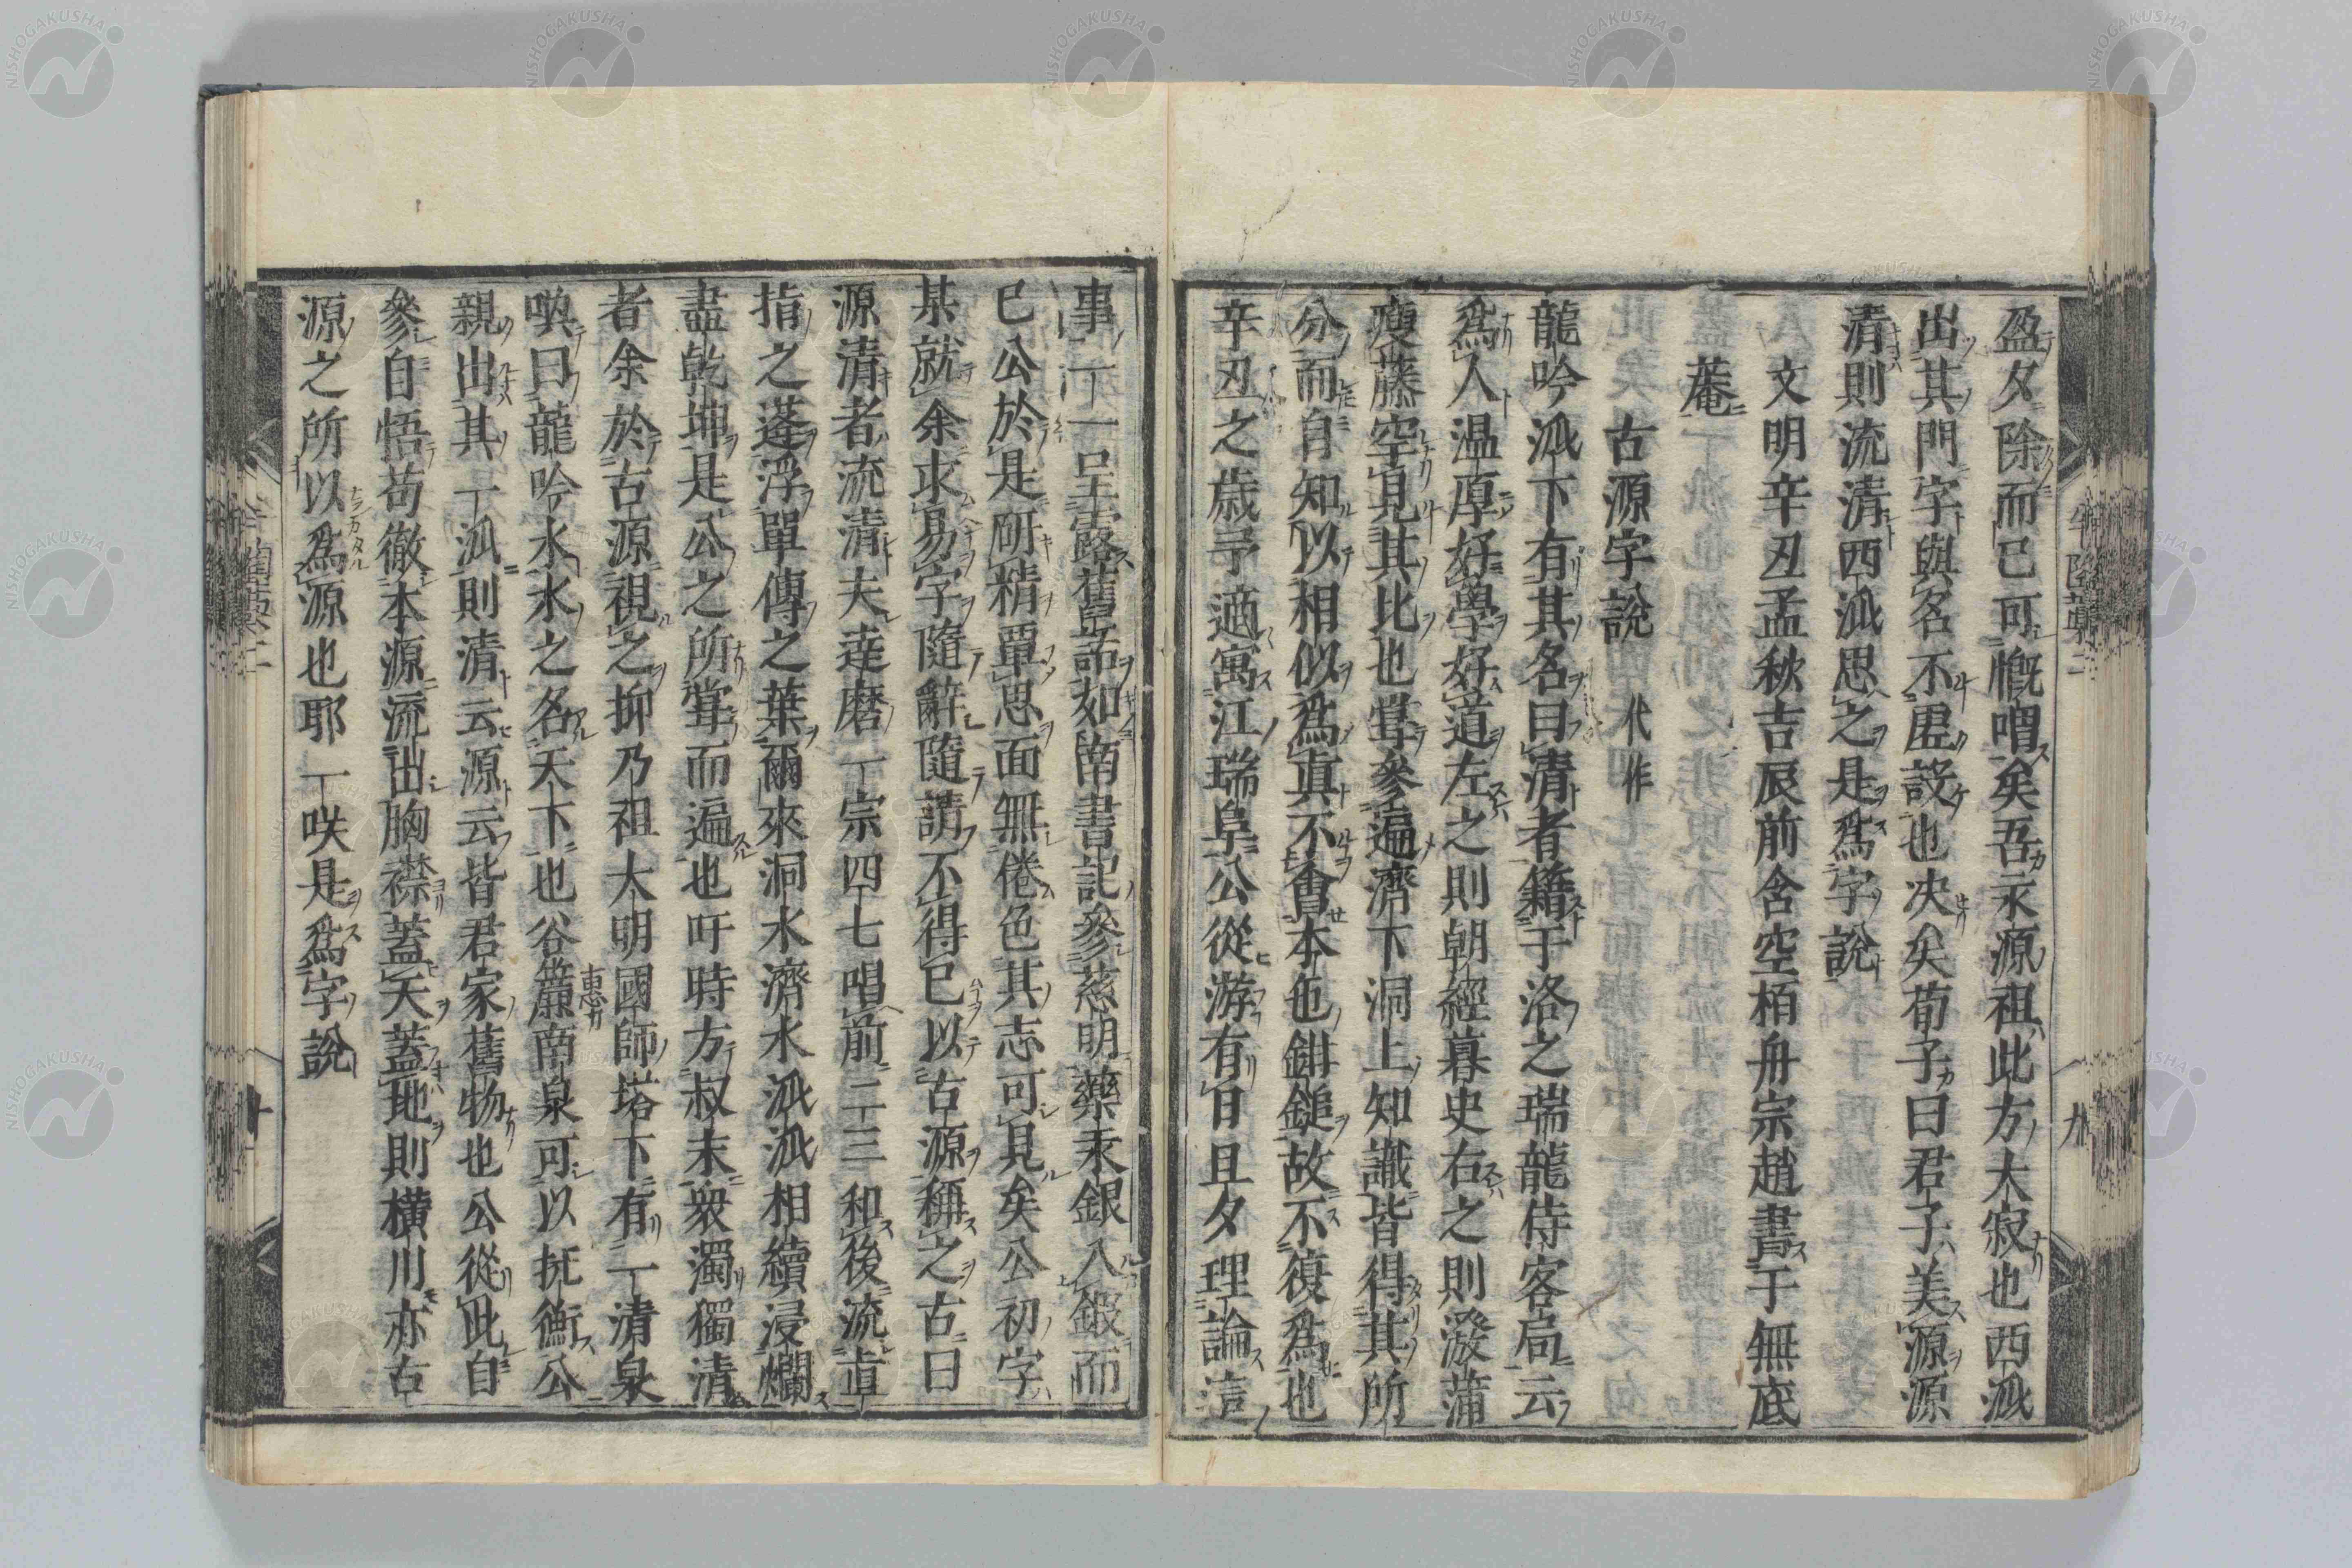 盈夕除而已可慨嘳矣吾永源祖此方大寂也西派
出其門字與名不虚設也决矣荀子曰君子美源源
清則流清西派思之是爲字說
文明辛丑孟秋吉辰前含空栢舟宗趙書于無底
菴
古源字說 代作
龍吟派下有其名曰清者籍于洛之瑞龍侍客局云
爲人温厚好學好道左之則朝經暮史右之則潑蒲
瘦藤空見其比也甞參遍濟下洞上知識皆得其所
分而自知以相似爲眞不會本也鉗鎚故不復爲也
辛丑之歳予適寓江瑞阜公從游有日且夕理論這
事一一呈露舊話如南書記參慈明藥汞銀入鍜而
已公於是研精覃思面無倦色其志可見矣公初字
某就余求易字隨辭隨請不得已以古源稱之古曰
源清者流清夫達磨一宗四七唱前二三和後流直
指之蓬浮單傳之葉爾來洞水濟水派派相續浸爛
盡乾坤是公之所甞而遍也吁時方叔末衆濁獨清
者余於古源視之抑乃祖大明國師塔下有一清泉
喚曰龍吟水水之名天下也谷簾南泉可以抚衡公
惠カ
親出其一派則清云源云皆君家舊物也公從此自
參自悟苟徹本源流出胸襟蓋天蓋地則横川亦古
源之所以爲源也耶一咲是爲字說
九